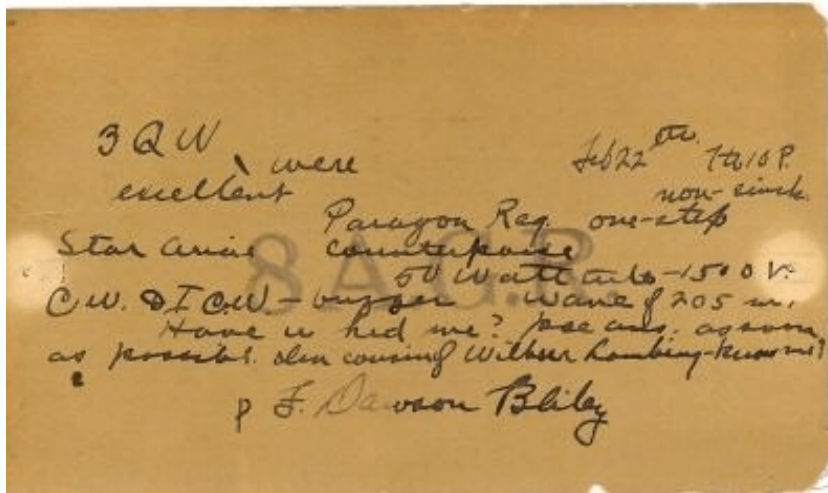 3 Q W were Feb 22 th 7 to 10 P.
excellent non-sink.
Paragon Reg. one-step
Star counterpoise
8 A.G.R
50 Watt tube - 1500 V.
C.W. & I.C.W. - buzzer wave of 205 m.
Have u hrd me? pse ans. as soon
as possible. cousin of Wilbur
p F. Dawson Bliley